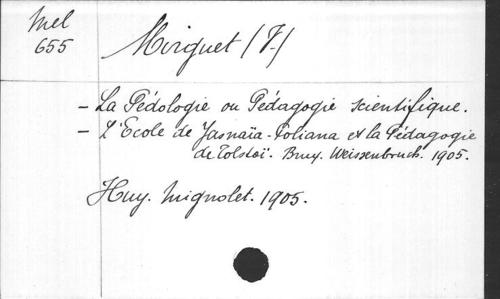 Mel
655
Mirguet (V.)
- La Pédologie ou Pédagogie scientifique.
- L'Ecole de Jasnaïa-Poliana et la Pédagogie
de Tolstoï. Brux. Weissenbruch. 1905.
Huy. Mignolet. 1905.